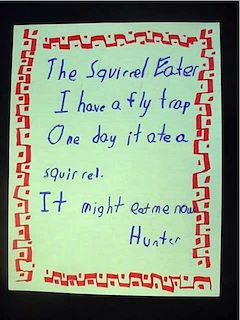 The Squirrel Eater
I have a fly trap
One day it ate a
squirrel.
It might eat me now
Hunter